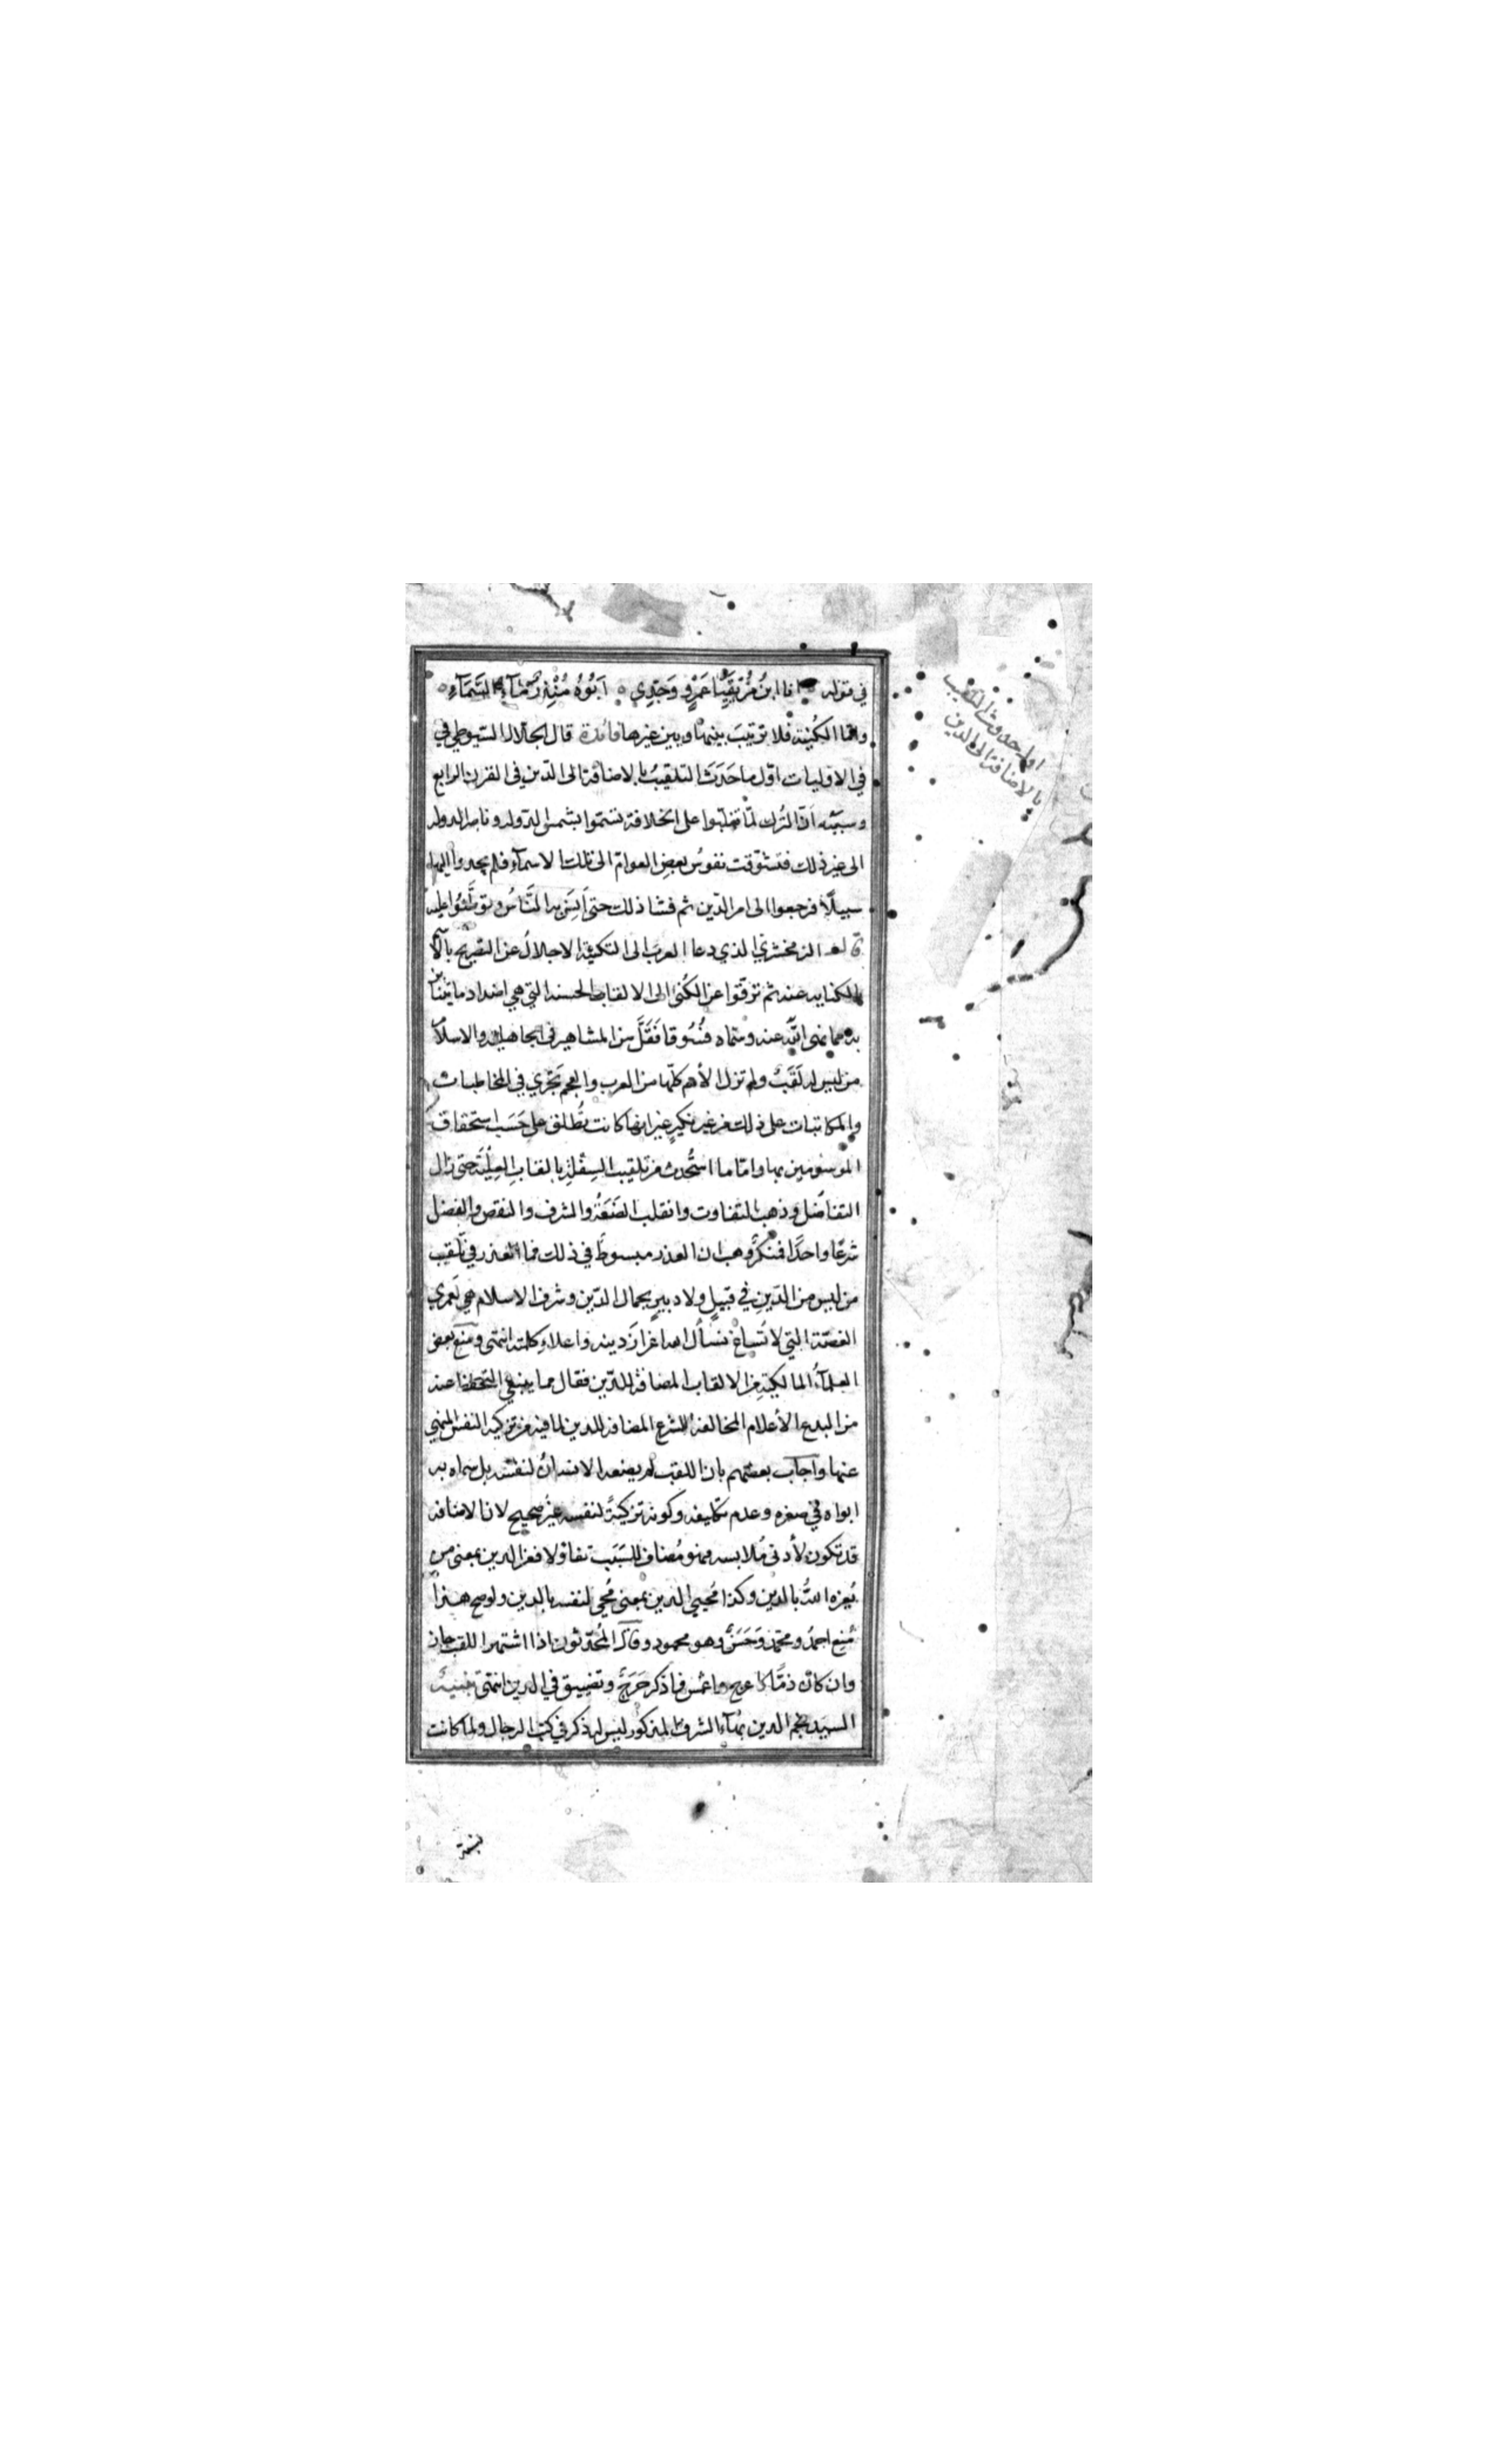 في قوله انا ابنُ مُزَيقِيَّا عَمْرٍو وَجَدِّي ابُوهُ مُنْذِرٌ مَآءُ السَّمَآءِ
واما الكُنية فلا ترتيبَ بينها وبين غيرها فائدة قال الجلال السّيوطي في
في الاوليات اوّل ما حَدَثَ التلقيبُ بالاضافة الى الدّين في القرن الرابع
وسببُه اَنّ التُرك لمّا تغلّبوا على الخلافة تسَمّوا بشمس الدّولة وناصر الدولة
الى غير ذلك فتشوّقت نفوسُ بعضِ العوامّ الى تلك الاسمآء فلم يجدوا اليها
سبيلًا فرجعوا الى امر الدّين ثم فشا ذلك حتى اَنِسَ به النَّاسُ وتواطَؤُا عليه
قال الزمخشريّ الذي دعا العرب الى التكنية الاجلالُ عن التصريح بالاسم
بالكناية عنه ثم ترقّوا عن الكُنى الى الالقاب الحسنة التي هي اضداد ما يتنابز
به مما نهى اللّه عنه وسمّاه فُسُوقا فَقَلَّ من المشاهير في الجاهلية والاسلام
من ليس له لَقَبٌ ولم تزل الأمم كلّها من العرب والعجم تَجْري في المخاطبات
والمكاتبات على ذلك من غير نكيرٍ غير انها كانت تُطلق على حَسَب استحقاق
الموسُومين بها وامّا ما استُحدث من تلقيب السِفْلَةِ بالقابِ العِلْيَةِ حتى زال
التفاضُل وذهب التفاوت وانقلب الضَعَةُ والشرف والنقص والفضل
شرعًا واحدًا فمنكرٌ وهب ان العذر مبسوط في ذلك فما العذر في تلقيب
من ليس من الدّين في قبيلٍ ولا دبيرٍ بجمال الدّين وشرف الاسلام هي لَعَمري
الغصّة التي لا تُساغ نسأل الله اعزازَ دينه واعلاءَ كلمته انتهى ومنع بعض
العلمآءُ المالكية من الالقاب المضافة للدّين فقال مما ينبغي التحفظ عنه
من البدع الأعلام المخالفة للشرع المضافة للدين لما فيه من تزكية النفس المنهي
عنها واجاب بعضهم بان اللقب لم يضعه الانسانُ لنفسه بل سماه به
ابواه في صغره وعدم تكليفه وكونه تزكيةً لنفسه غير صحيح لان الاضافة
قد تكون لأدنى مُلابسة فهو مُضاف للسَبَب تفاؤلا فعز الدين بمعنى من
يُعِزه اللّهُ بالدين وكذا مُحيي الدين بمعنى مُحيي لنفسه بالدين ولو صح هذا
مُنِع احمدُ ومحمّد وَحَسَنٌ وهو محمود وقال المُحدّثون اذا اشتهر اللقب جاز
وان كان ذمًّا كاعرج واعمش فما ذكر حَرَجٌ وتضييق في الدين انتهى تنبيهٌ
السيد نجم الدين بهآء الشرف المذكور ليس له ذكر في كتب الرجال ولما كانت
اول حدوث التلقيب
بالاضافة الى الدين